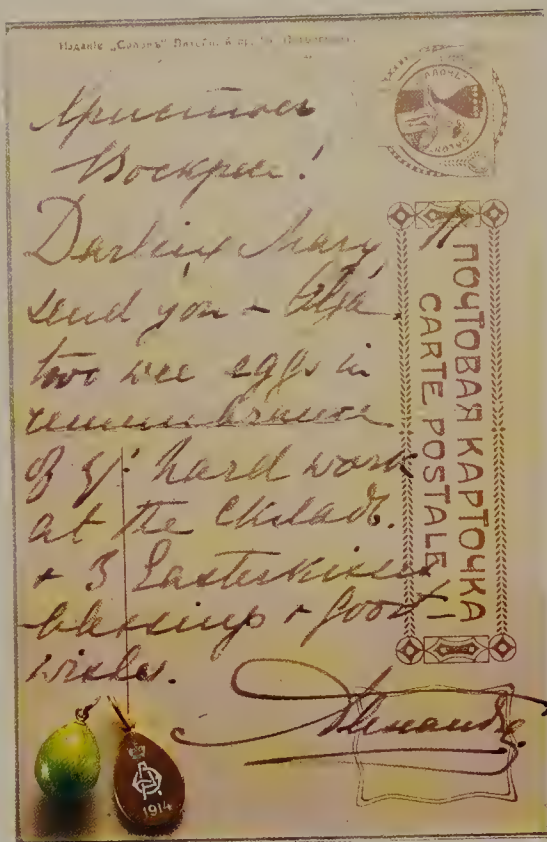 Изданіе „Салонъ“
Христосъ
Воскресе!
Darling Mary I
send you + Olga
two wee eggs in
remembrance
of yr. hard work
at the Складъ.
+ 3 Easterkisses
blessings + good
wishes.
Alexandra
ПОЧТОВАЯ КАРТОЧКА
CARTE POSTALE
1914